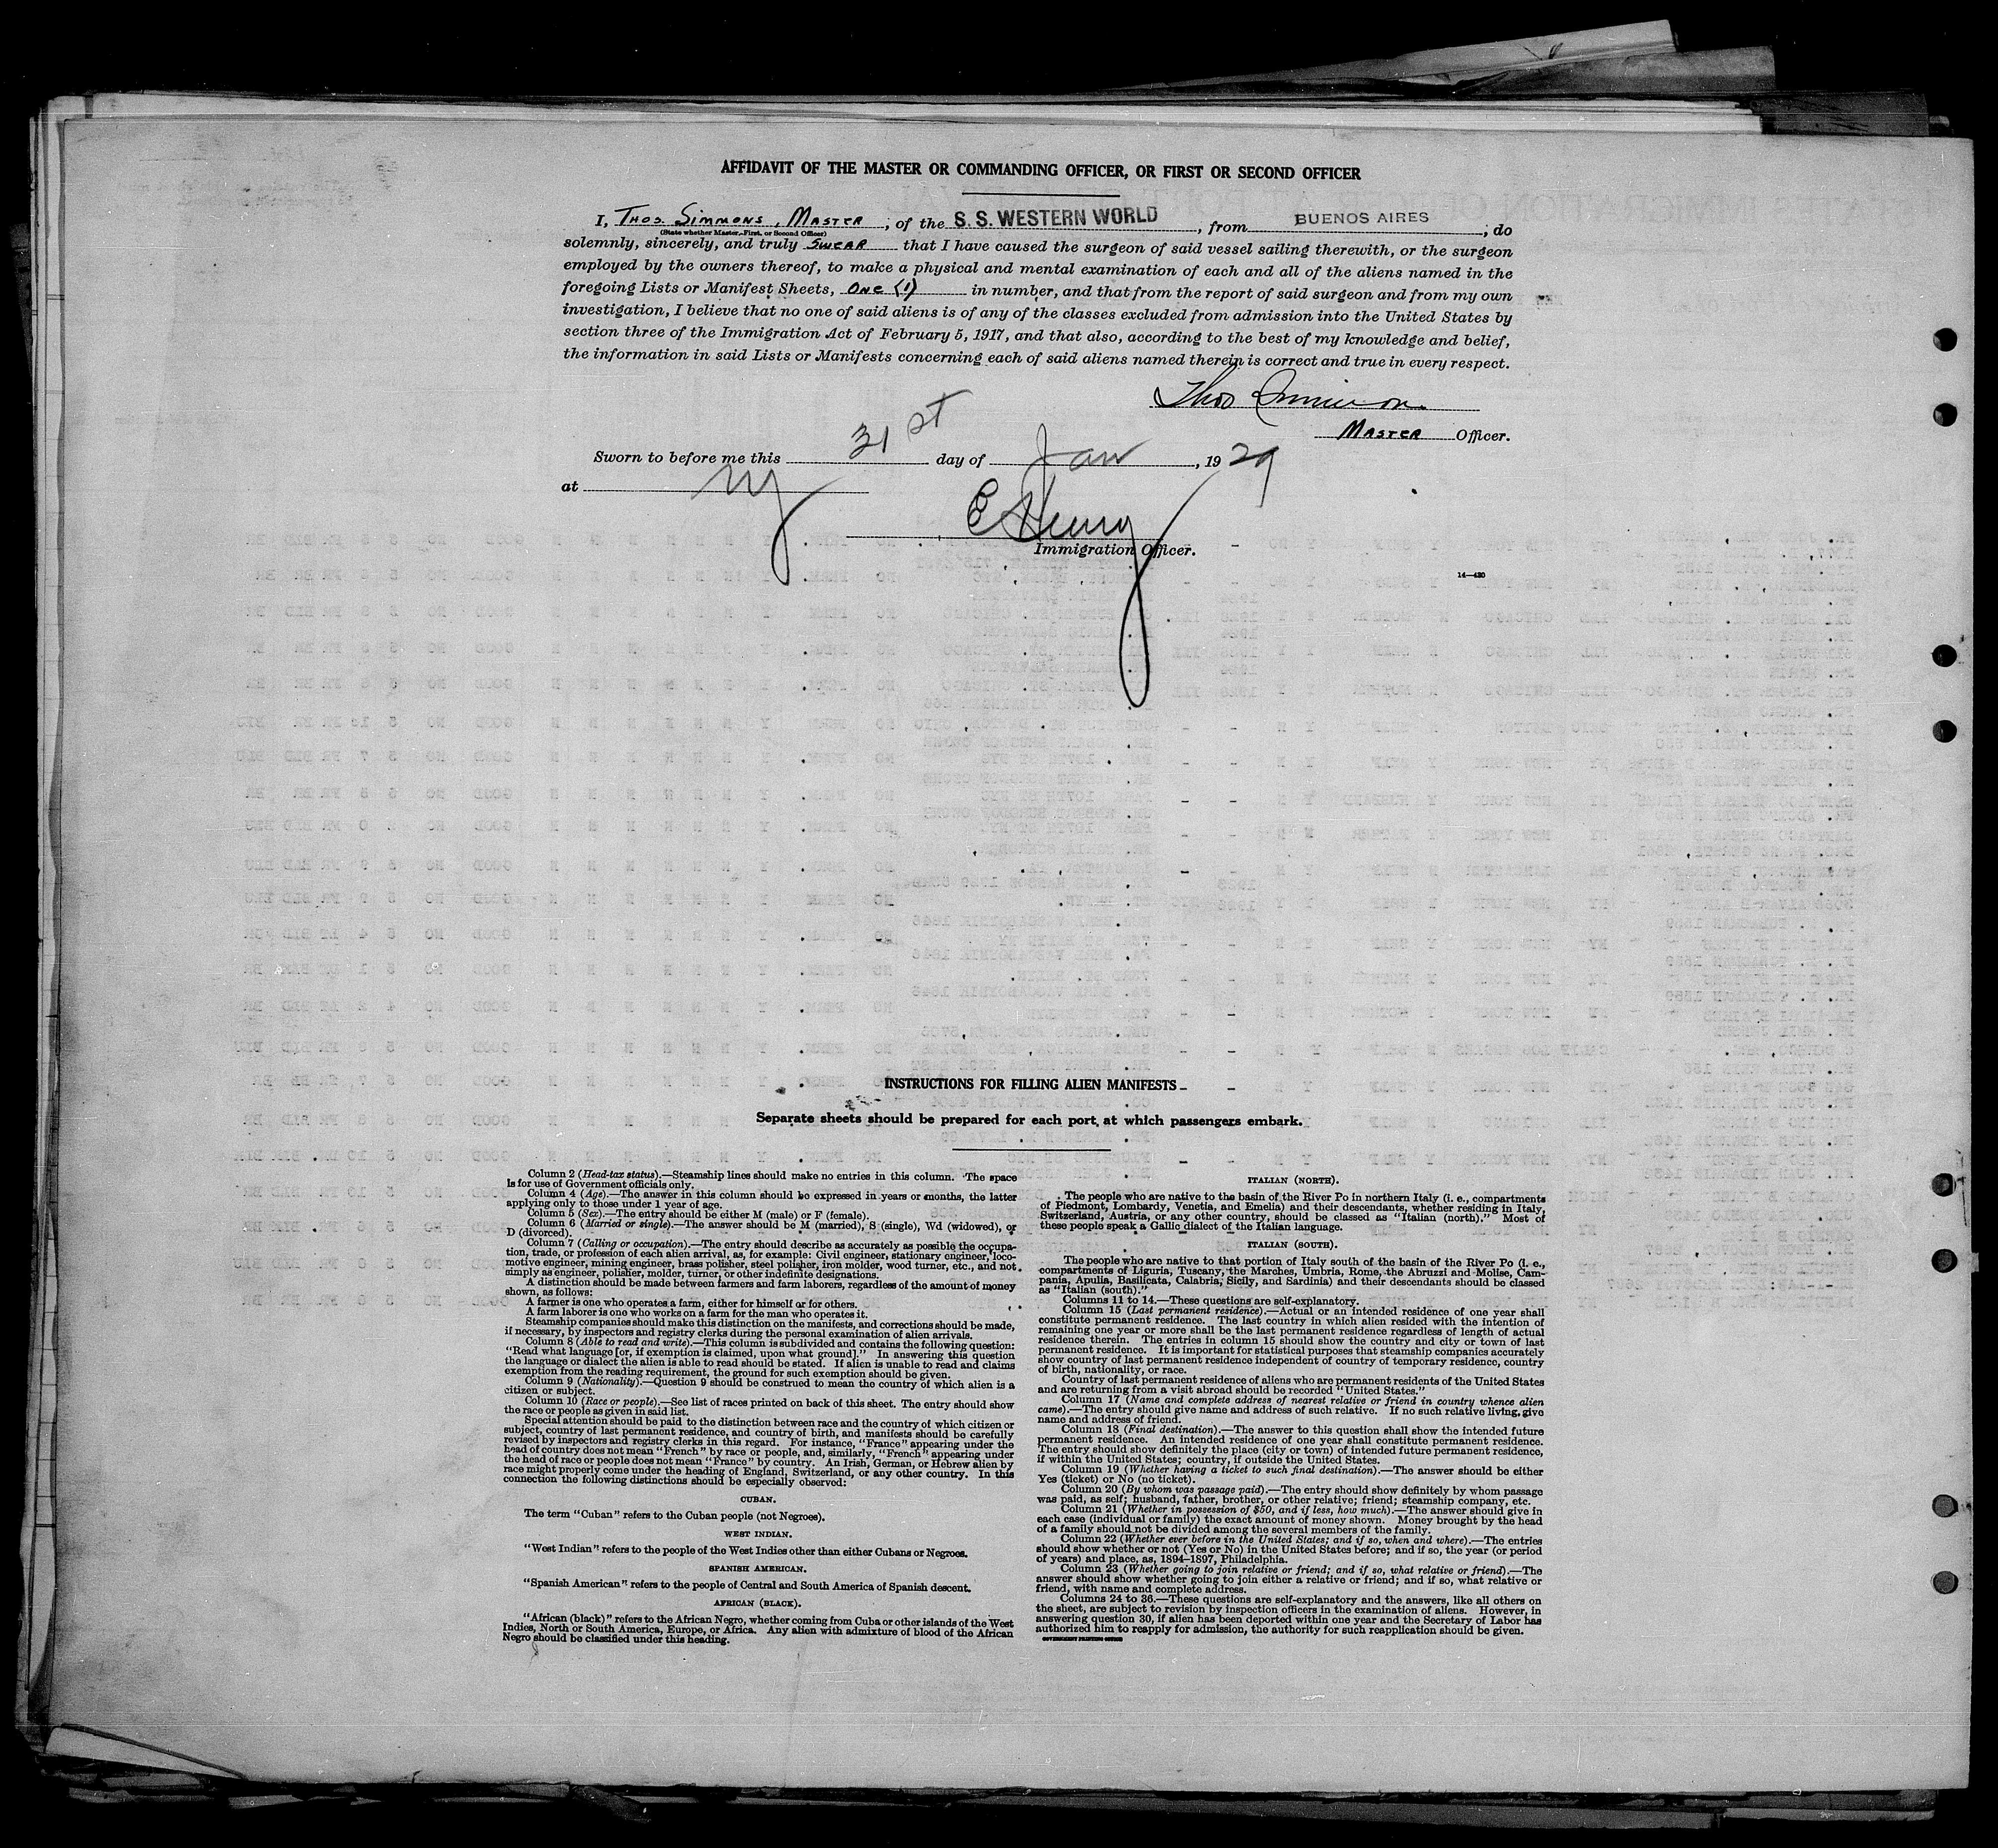 AFFIDAVIT OF THE MASTER OR COMMANDING OFFICER, OR FIRST OR SECOND OFFICER
I, THOS. SIMMONS, MASTER, of the S. S. WESTERN WORLD, from BUENOS AIRES; do
(State whether Master, First, or Second Officer)
solemnly, sincerely, and truly SWEAR that I have caused the surgeon of said vessel sailing therewith, or the surgeon
employed by the owners thereof, to make a physical and mental examination of each and all of the aliens named in the
foregoing Lists or Manifest Sheets, ONE (1) in number, and that from the report of said surgeon and from my own
investigation, I believe that no one of said aliens is of any of the classes excluded from admission into the United States by
section three of the Immigration Act of February 5, 1917, and that also, according to the best of my knowledge and belief,
the information in said Lists or Manifests concerning each of said aliens named therein is correct and true in every respect.
Thos Simmons
MASTER Officer.
Sworn to before me this 31st day of Jan, 1929
at NY
Immigration Officer.
14—420
INSTRUCTIONS FOR FILLING ALIEN MANIFESTS
Separate sheets should be prepared for each port, at which passengers embark.
Column 2 (Head-tax status).—Steamship lines should make no entries in this column. The space
is for use of Government officials only.
Column 4 (Age).—The answer in this column should be expressed in years or months, the latter
applying only to those under 1 year of age.
Column 5 (Sex).—The entry should be either M (male) or F (female).
Column 6 (Married or single).—The answer should be M (married), S (single), Wd (widowed), or
D (divorced).
Column 7 (Calling or occupation).—The entry should describe as accurately as possible the occupa-
tion, trade, or profession of each alien arrival, as, for example: Civil engineer, stationary engineer, loco-
motive engineer, mining engineer, brass polisher, steel polisher, iron molder, wood turner, etc., and not
simply as engineer, polisher, molder, turner, or other indefinite designations.
A distinction should be made between farmers and farm laborers, regardless of the amount of money
shown, as follows:
A farmer is one who operates a farm, either for himself or for others.
A farm laborer is one who works on a farm for the man who operates it.
Steamship companies should make this distinction on the manifests, and corrections should be made,
if necessary, by inspectors and registry clerks during the personal examination of alien arrivals.
Column 8 (Able to read and write).—This column is subdivided and contains the following question:
"Read what language [or, if exemption is claimed, upon what ground]." In answering this question
the language or dialect the alien is able to read should be stated. If alien is unable to read and claims
exemption from the reading requirement, the ground for such exemption should be given.
Column 9 (Nationality).—Question 9 should be construed to mean the country of which alien is a
citizen or subject.
Column 10 (Race or people).—See list of races printed on back of this sheet. The entry should show
the race or people as given in said list.
Special attention should be paid to the distinction between race and the country of which citizen or
subject, country of last permanent residence, and country of birth, and manifests should be carefully
revised by inspectors and registry clerks in this regard. For instance, "France" appearing under the
head of country does not mean "French" by race or people, and, similarly, "French" appearing under
the head of race or people does not mean "France" by country. An Irish, German, or Hebrew alien by
race might properly come under the heading of England, Switzerland, or any other country. In this
connection the following distinctions should be especially observed:
CUBAN.
The term "Cuban" refers to the Cuban people (not Negroes).
WEST INDIAN.
"West Indian" refers to the people of the West Indies other than either Cubans or Negroes.
SPANISH AMERICAN.
"Spanish American" refers to the people of Central and South America of Spanish descent.
AFRICAN (BLACK).
"African (black)" refers to the African Negro, whether coming from Cuba or other islands of the West
Indies, North or South America, Europe, or Africa. Any alien with admixture of blood of the African
Negro should be classified under this heading.
ITALIAN (NORTH).
The people who are native to the basin of the River Po in northern Italy (i. e., compartments
of Piedmont, Lombardy, Venetia, and Emelia) and their descendants, whether residing in Italy,
Switzerland, Austria, or any other country, should be classed as "Italian (north)." Most of
these people speak a Gallic dialect of the Italian language.
ITALIAN (SOUTH).
The people who are native to that portion of Italy south of the basin of the River Po (i. e.,
compartments of Liguria, Tuscany, the Marches, Umbria, Rome, the Abruzzi and Molise, Cam-
pania, Apulia, Basilicata, Calabria, Sicily, and Sardinia) and their descendants should be classed
as "Italian (south)."
Columns 11 to 14.—These questions are self-explanatory.
Column 15 (Last permanent residence).—Actual or an intended residence of one year shall
constitute permanent residence. The last country in which alien resided with the intention of
remaining one year or more shall be the last permanent residence regardless of length of actual
residence therein. The entries in column 15 should show the country and city or town of last
permanent residence. It is important for statistical purposes that steamship companies accurately
show country of last permanent residence independent of country of temporary residence, country
of birth, nationality, or race.
Country of last permanent residence of aliens who are permanent residents of the United States
and are returning from a visit abroad should be recorded "United States."
Column 17 (Name and complete address of nearest relative or friend in country whence alien
came).—The entry should give name and address of such relative. If no such relative living, give
name and address of friend.
Column 18 (Final destination).—The answer to this question shall show the intended future
permanent residence. An intended residence of one year shall constitute permanent residence.
The entry should show definitely the place (city or town) of intended future permanent residence,
if within the United States; country, if outside the United States.
Column 19 (Whether having a ticket to such final destination).—The answer should be either
Yes (ticket) or No (no ticket).
Column 20 (By whom was passage paid).—The entry should show definitely by whom passage
was paid, as self; husband, father, brother, or other relative; friend; steamship company, etc.
Column 21 (Whether in possession of $50, and if less, how much).—The answer should give in
each case (individual or family) the exact amount of money shown. Money brought by the head
of a family should not be divided among the several members of the family.
Column 22 (Whether ever before in the United States; and if so, when and where).—The entries
should show whether or not (Yes or No) in the United States before; and if so, the year (or period
of years) and place, as, 1894–1897, Philadelphia.
Column 23 (Whether going to join relative or friend; and if so, what relative or friend).—The
answer should show whether going to join either a relative or friend; and if so, what relative or
friend, with name and complete address.
Columns 24 to 36.—These questions are self-explanatory and the answers, like all others on
the sheet, are subject to revision by inspection officers in the examination of aliens. However, in
answering question 30, if alien has been deported within one year and the Secretary of Labor has
authorized him to reapply for admission, the authority for such reapplication should be given.
GOVERNMENT PRINTING OFFICE